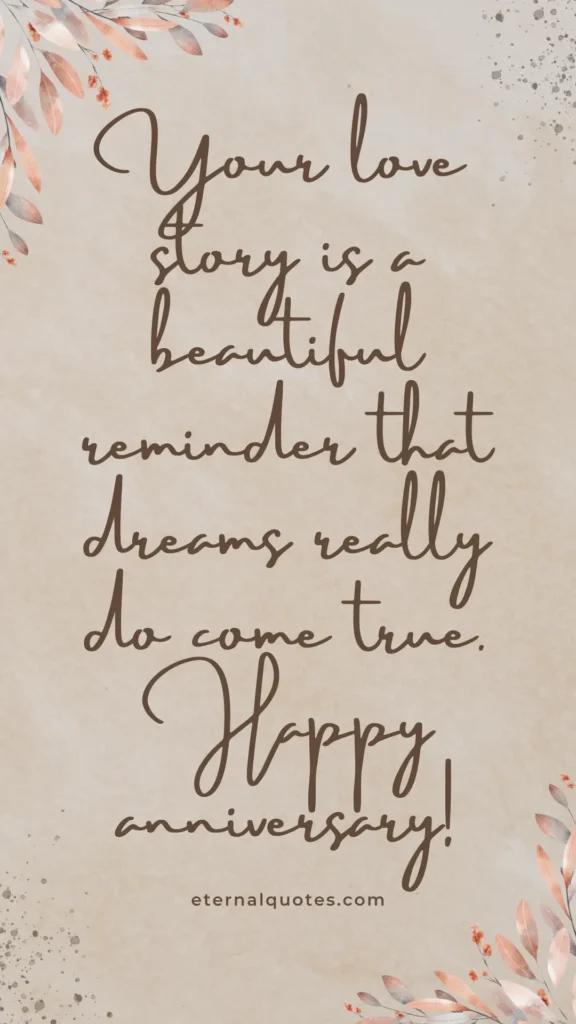 Your love
story is a
beautiful
reminder that
dreams really
do come true.
Happy
anniversary!
eternalquotes.com